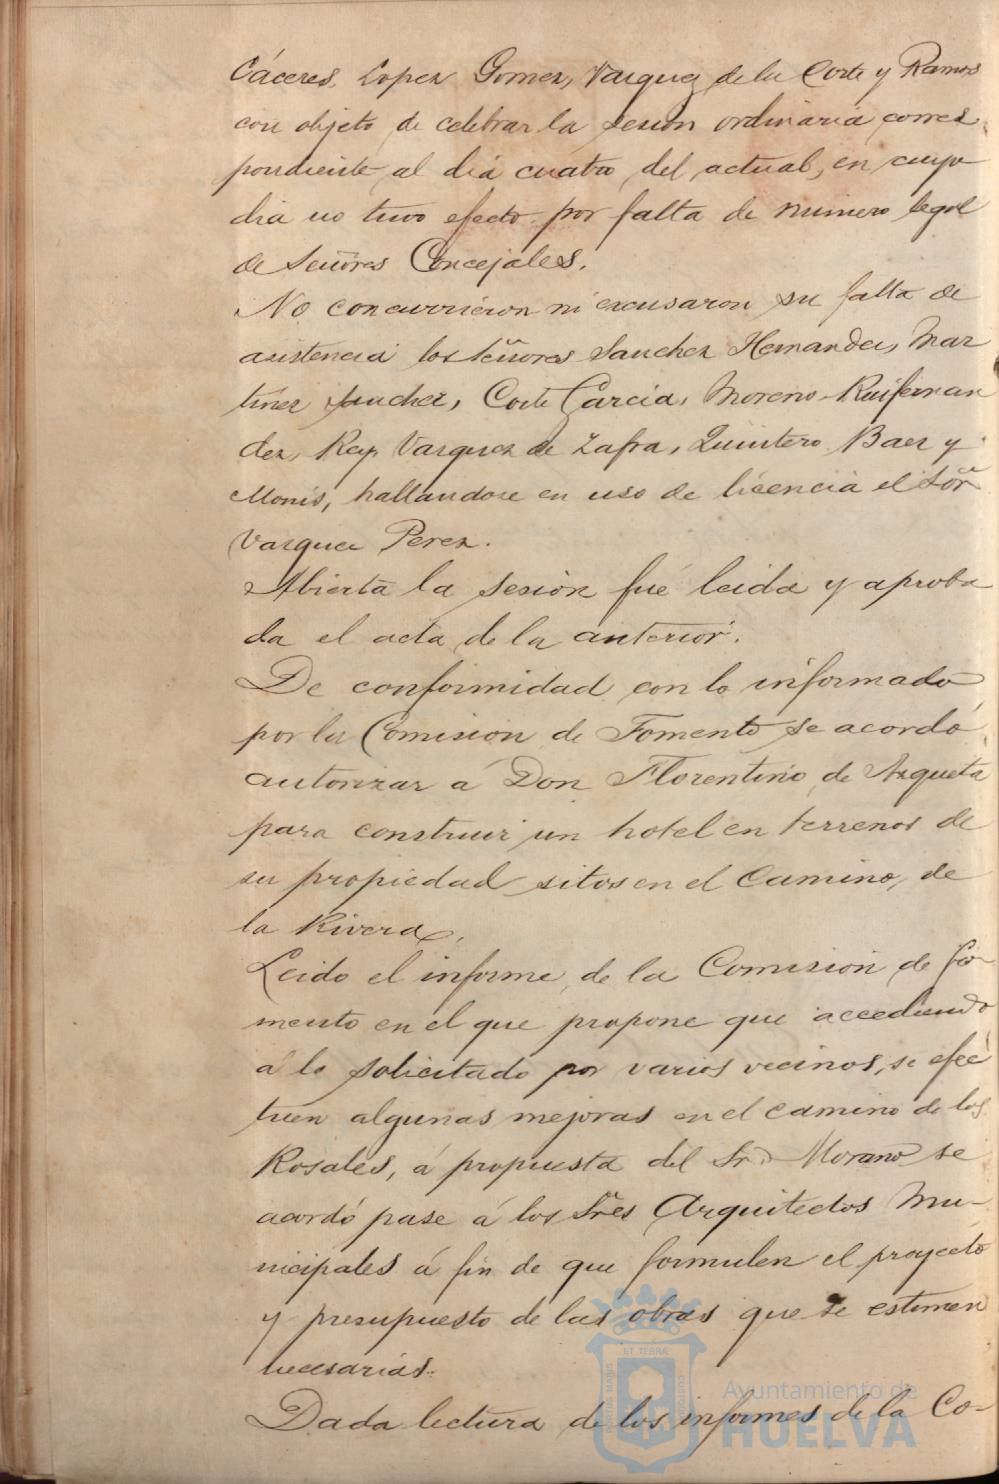 Cáceres, Lopez Gomez, Vazquez de la Corte y Ramos
con objeto de celebrar la sesion ordinaria corres
pondiente al dia cuatro del actual, en cuyo
dia no tuvo efecto por falta de número legal
de Señores Concejales.
No concurrieron ni excusaron su falta de
asistencia los Señores Sanchez Hernandez, Mar
tinez Sanchez, Corte Garcia, Moreno, Ruifernan
dez, Rey, Vazquez de Zafra, Quintero Baez y
Monis, hallandose en uso de licencia el Sor
Vazquez Perez.
Abierta la sesión fué leida y aproba
da el acta de la anterior.
De conformidad con lo informado
por la Comision de Fomento se acordó
autorizar á Don Florentino de Azqueta
para construir un hotel en terrenos de
su propiedad sitos en el Camino de
la Rivera.
Leido el informe de la Comision de Fo-
mento en el que propone que accediendo
á lo solicitado por varios vecinos, se efec
tuen algunas mejoras en el camino de los
Rosales, á propuesta del Sr. Morano se
acordó pase á los Sres Arquitectos Mu-
nicipales á fin de que formulen el proyecto
y presupuesto de las obras que se estimen
necesarias.
Dada lectura de los informes de la Co-
Ayuntamiento de
HUELVA